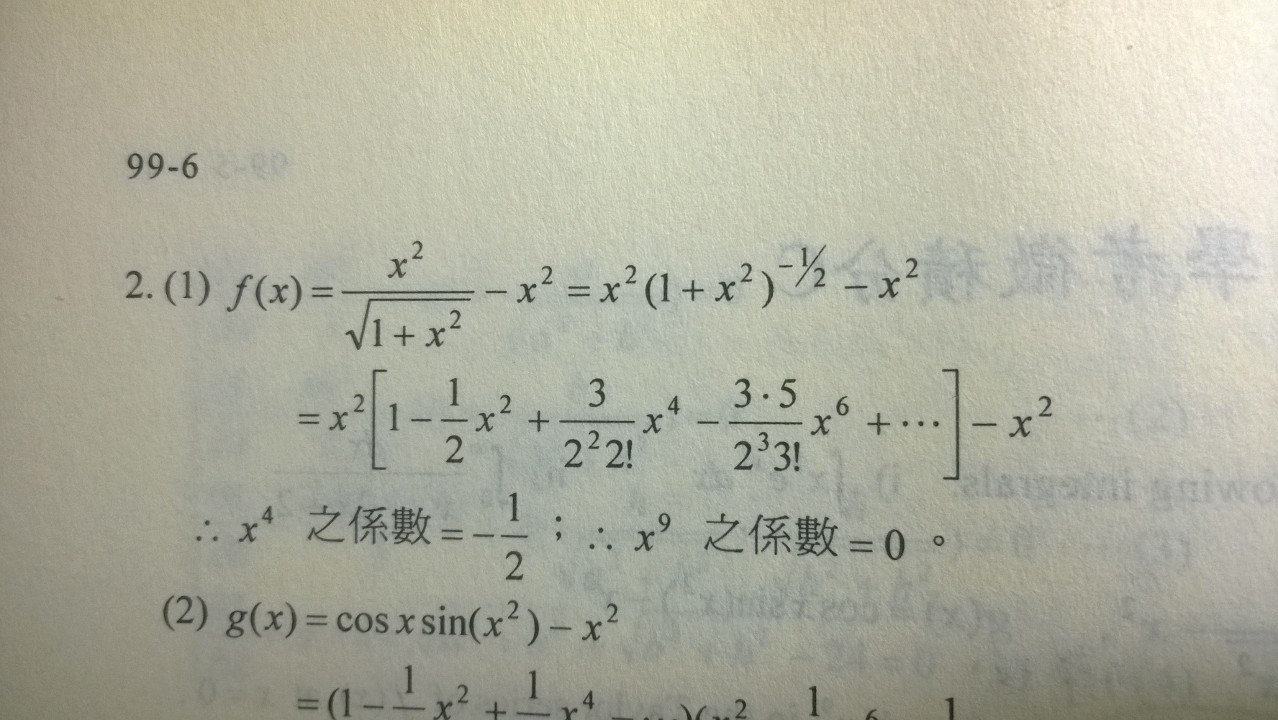 99-6
2. (1) f(x) = x²/√(1 + x²) − x² = x²(1 + x²)^(−1/2) − x²
= x²[1 − 1/2 x² + 3/(2²2!) x⁴ − 3·5/(2³3!) x⁶ + ⋯] − x²
∴ x⁴ 之係數 = −1/2 ; ∴ x⁹ 之係數 = 0 。
(2) g(x) = cos x sin(x²) − x²